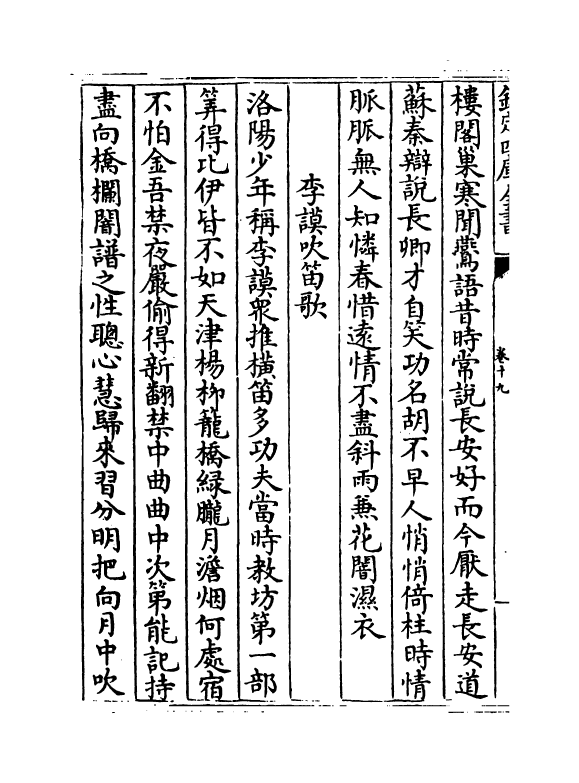 欽定四庫全書
卷十九
樓閣巢寒聞鶯語昔時常說長安好而今厭走長安道
蘇秦辯說長卿才自笑功名胡不早人悄悄倚柱時情
脈脈無人知憐春惜遠情不盡斜雨兼花闇濕衣
李謨吹笛歌
洛陽少年稱李謨衆推橫笛多功夫當時教坊第一部
筭得比伊皆不如天津楊柳籠橋綠朧月澹烟何處宿
不怕金吾禁夜嚴偷得新翻禁中曲曲中次第能記持
盡向橋欄闇譜之性聰心慧歸來習分明把向月中吹